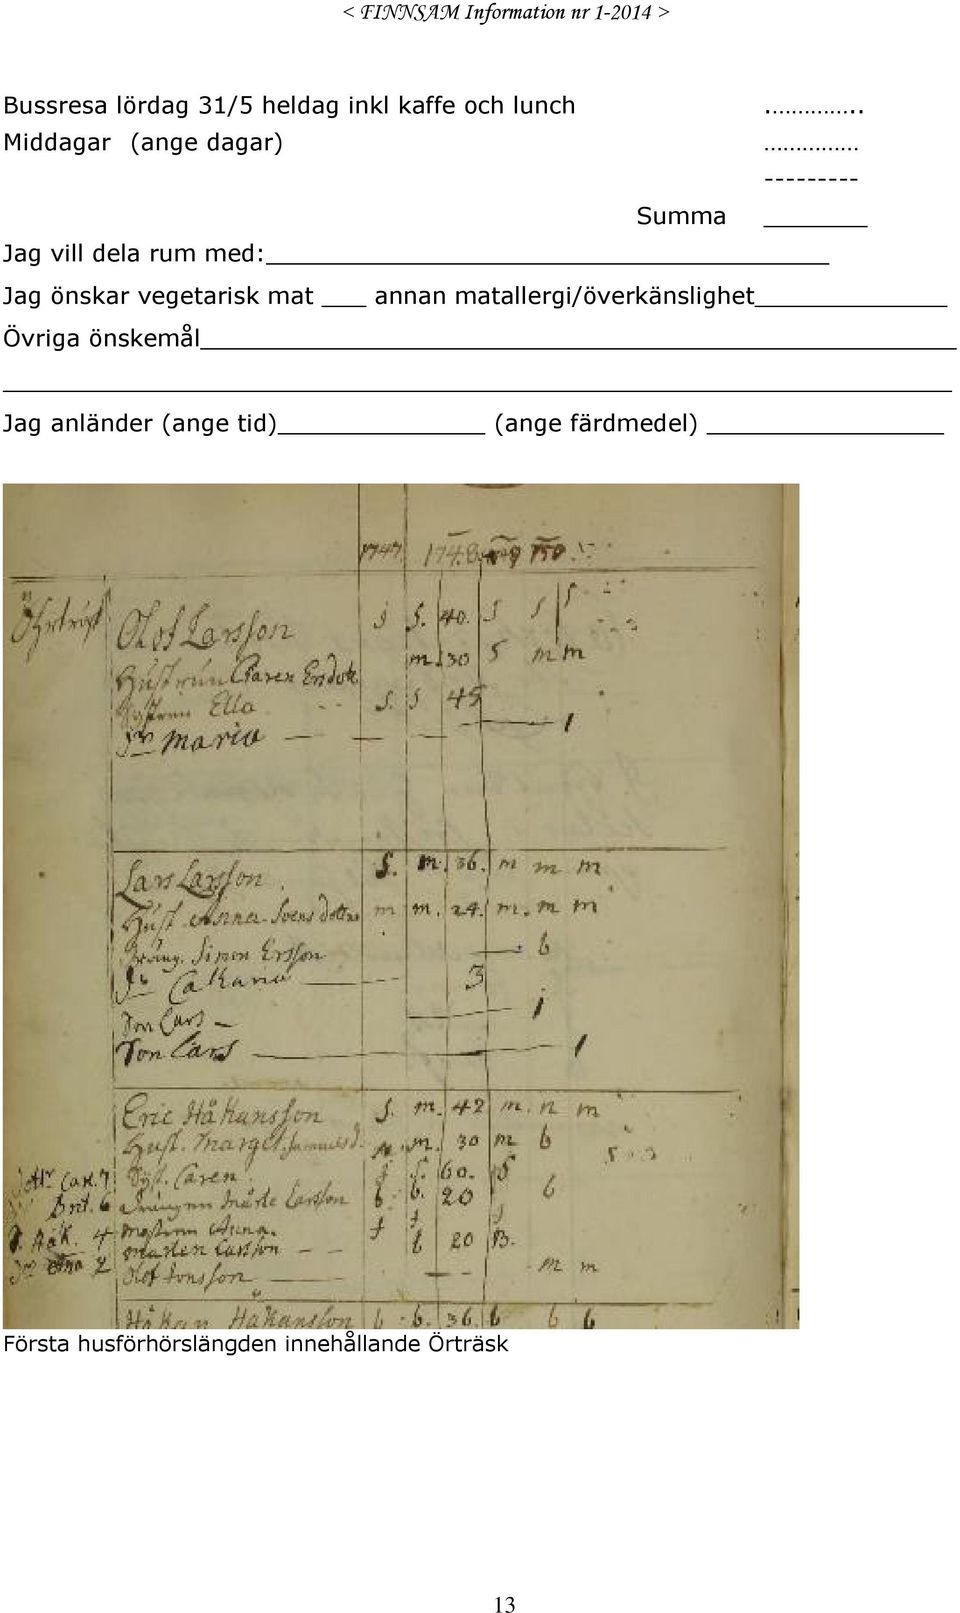 < FINNSAM Information nr 1-2014 >
Bussresa lördag 31/5 heldag inkl kaffe och lunch ...............
Middagar (ange dagar) ...............
---------
Summa _______
Jag vill dela rum med:______________________________________
Jag önskar vegetarisk mat ___ annan matallergi/överkänslighet_____________
Övriga önskemål___________________________________________________
________________________________________________________________
Jag anländer (ange tid)______________ (ange färdmedel) ________________
1747. 1748.
Olof Larsson S. 40. S S S
Caren Ersdotr m. 30 S m m
Ella S. S 45
Maria 1
Lars Larsson. S. m. 36. m m m
Hust. Anna Svens dotter m m. 24. m. m m
Dräng. Simon Ersson 6
3
Son Lars
Son Lars 1
Eric Håkansson S. m. 42 m. n m
Hust. Marget. Samuelsd. m. 30 m 6
Syst. Caren. 60.
Larsson 6. 6. 20 6
Anna.
Larsson 20 B.
Olof Jonsson m m
Håkan Håkansson 6 6. 36. 6 6 6
Första husförhörslängden innehållande Örträsk
13